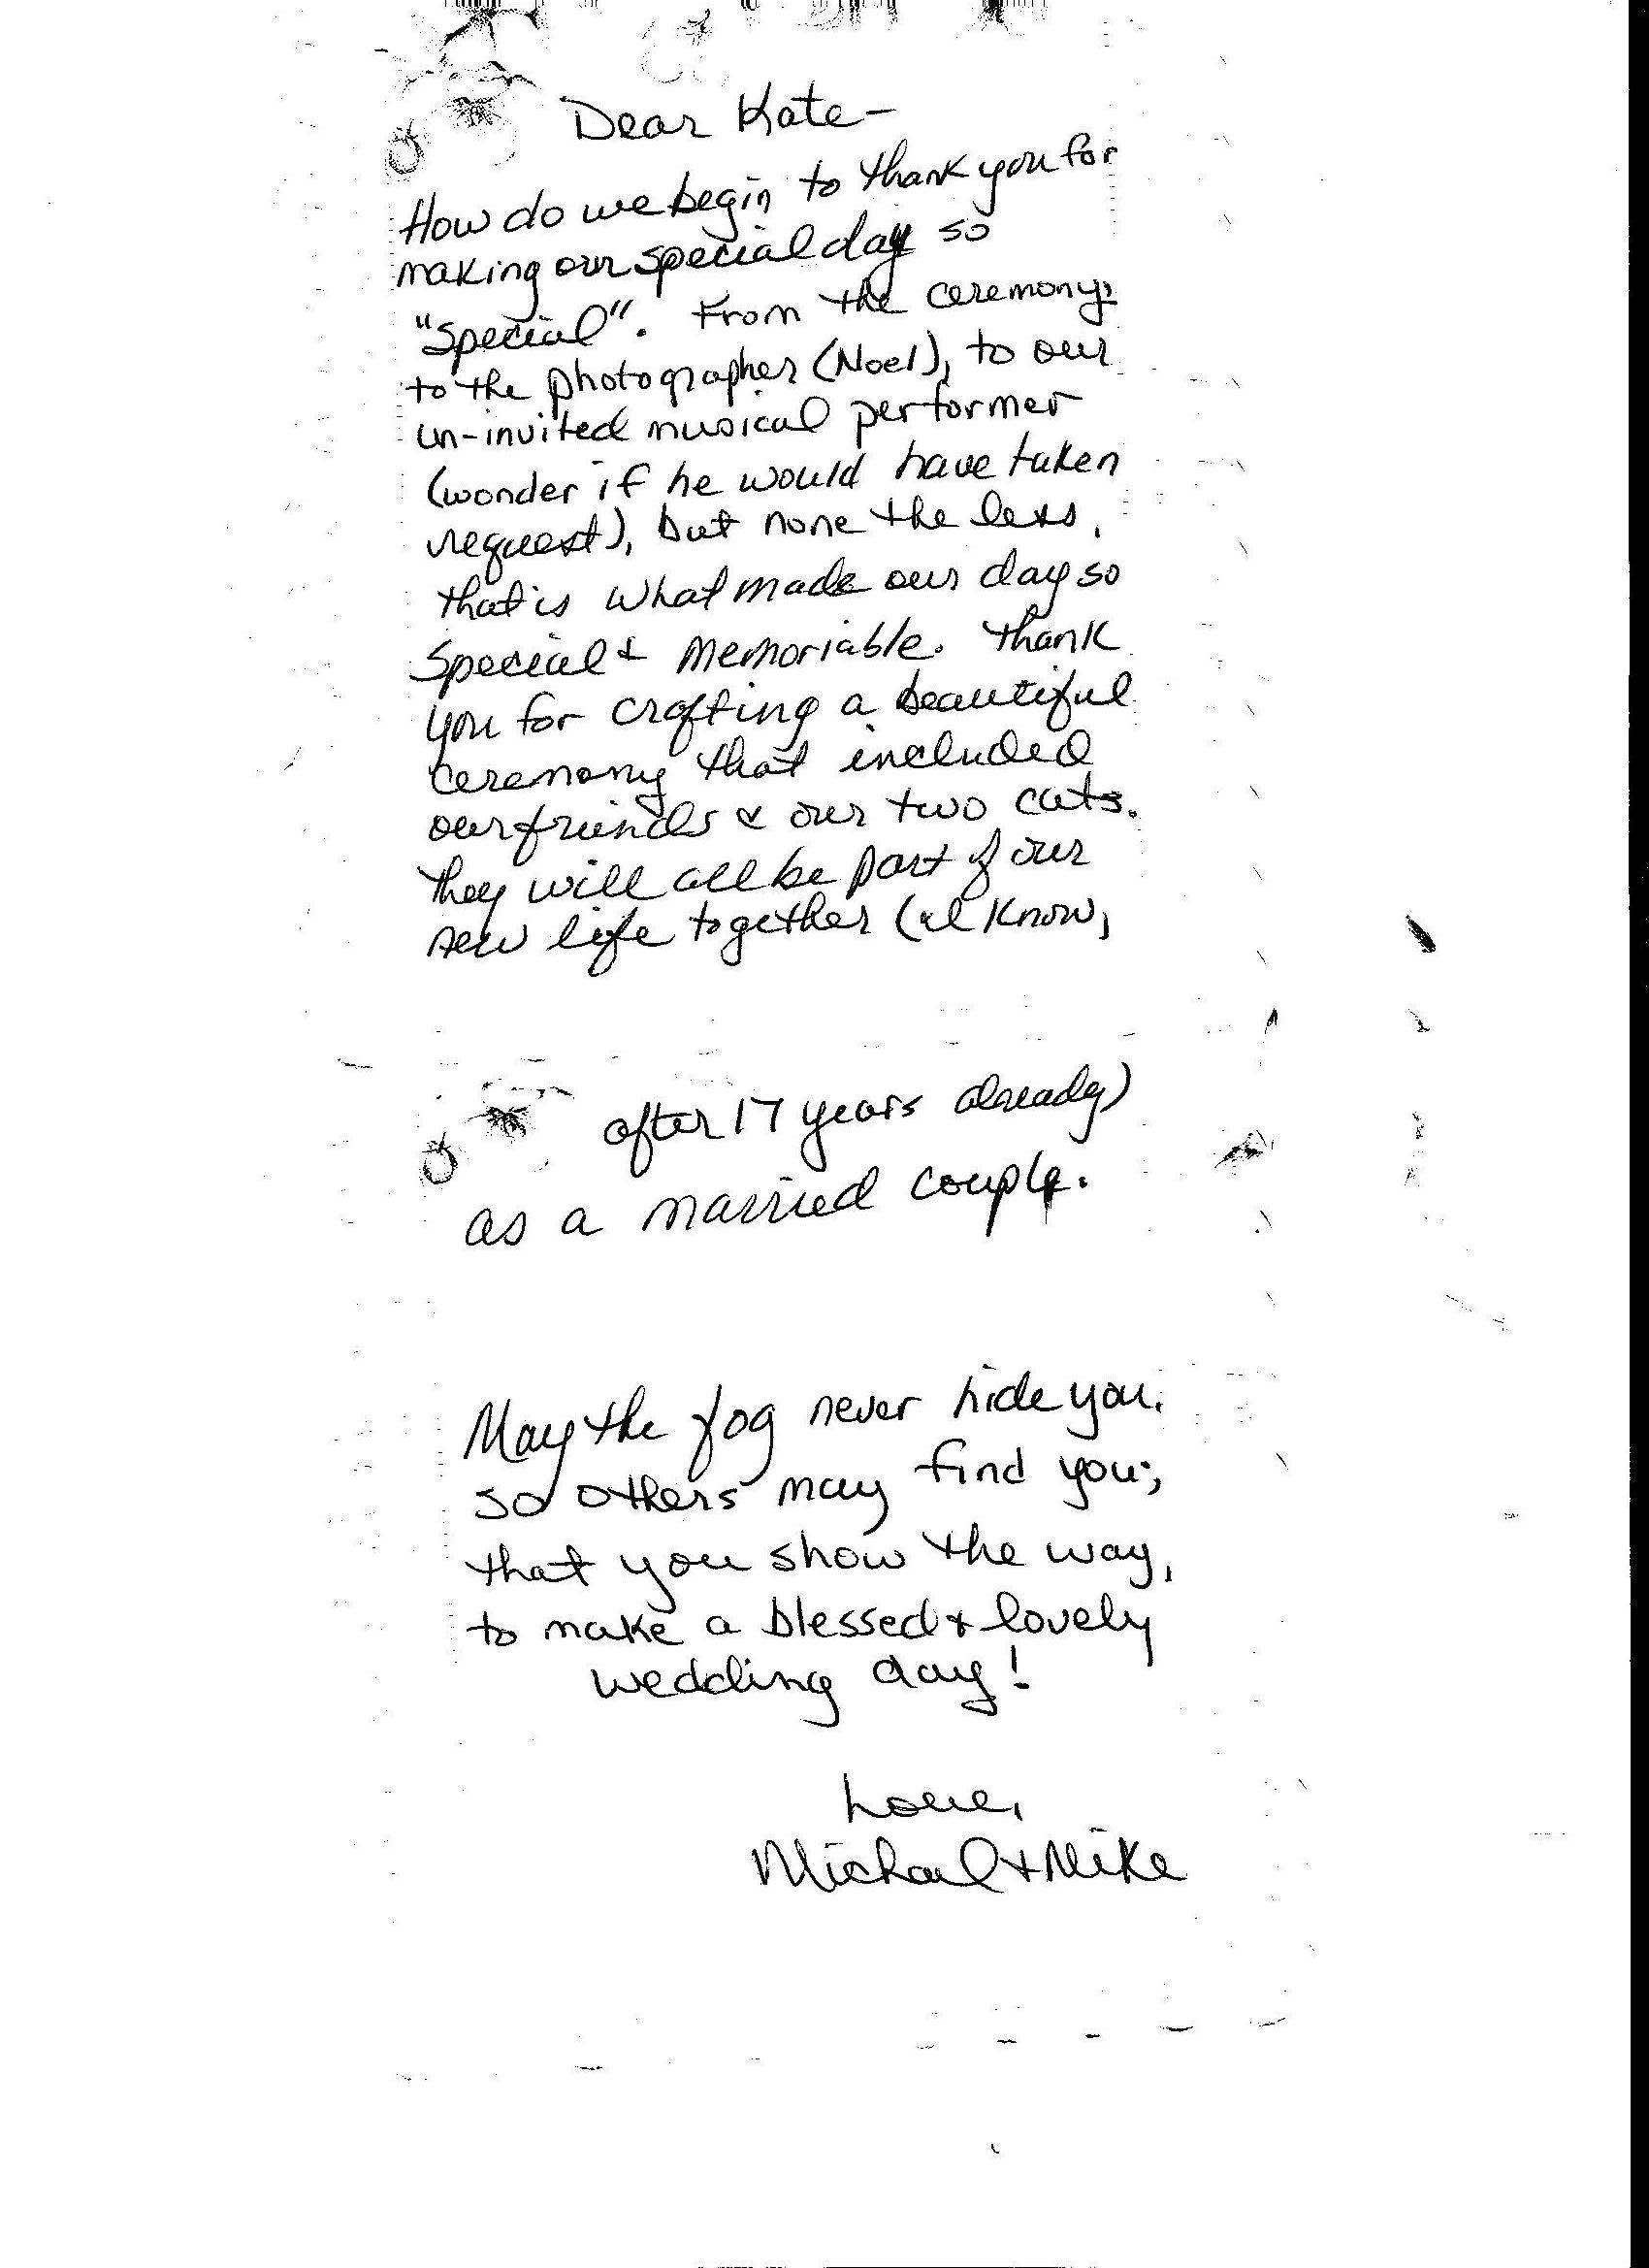 Dear Kate-
How do we begin to thank you for
making our special day so
"special". From the ceremony,
to the photographer (Noel), to our
un-invited musical performer
(wonder if he would have taken
request), but none the less,
that is what made our day so
special & memoriable. Thank
you for crafting a beautiful
ceremony that included
our friends & our two cats.
They will all be part of our
new life together (I know,
after 17 years already)
as a married couple.
May the fog never hide you,
so others may find you;
that you show the way,
to make a blessed & lovely
wedding day!
Love,
Michael & Mike